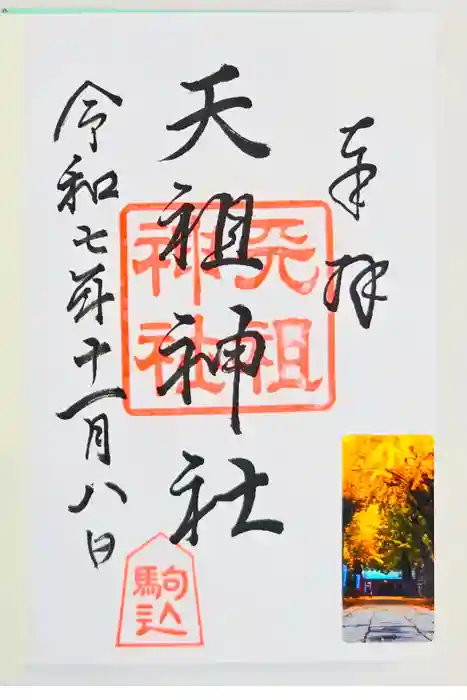 奉拝
天祖神社
天祖神社
令和七年十一月八日
駒込